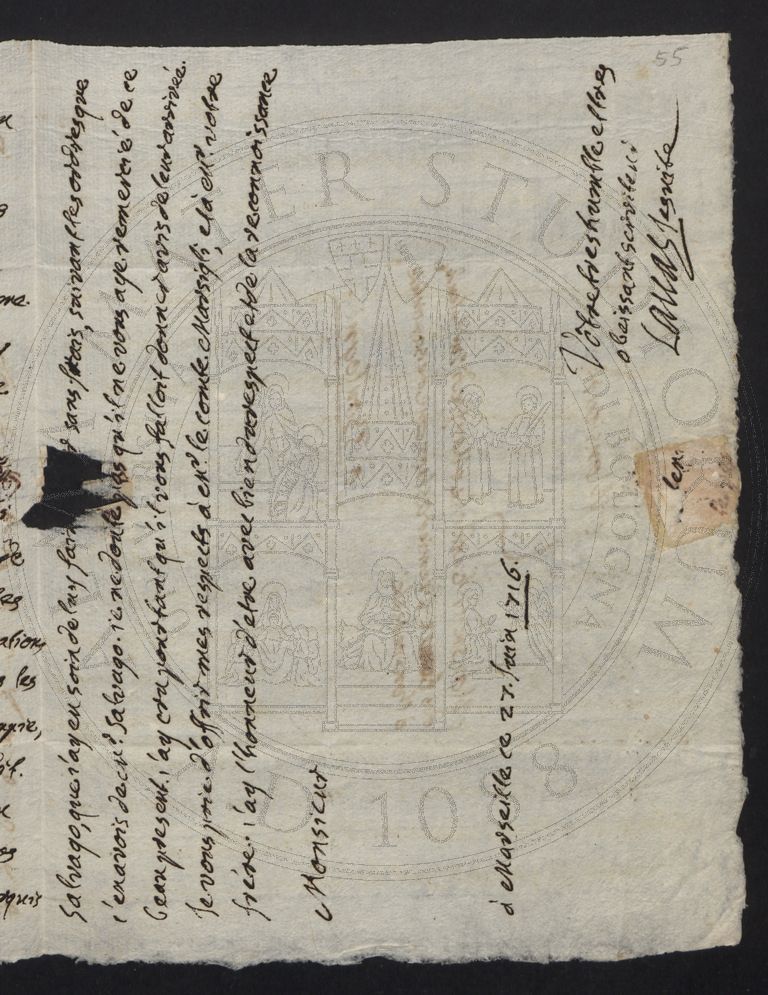 55
Salvago, que j'ay eu soin de luy fai sans frais, suivant les ordres que
j'en avois de mr. Salvago. je ne doute pas qu'il ne vous aye remercié de ce
beau present. j'ay cru pourtant qu'il vous falloit donner avis de leur arrivée.
Je vous prie d'offrir mes respects à mr. le comte Marsigli, et à mr. votre
frère. j'ay l'honneur d'etre avec bien du respect et de la reconnoissance
Monsieur
à Marseille ce 27. Juin 1716.
Votre tres humble et tres
obeissant serviteur
Laval Jesuite
ations
les
quis
ALMA MATER STUDIORUM
A.D. 1088
DI BOLOGNA